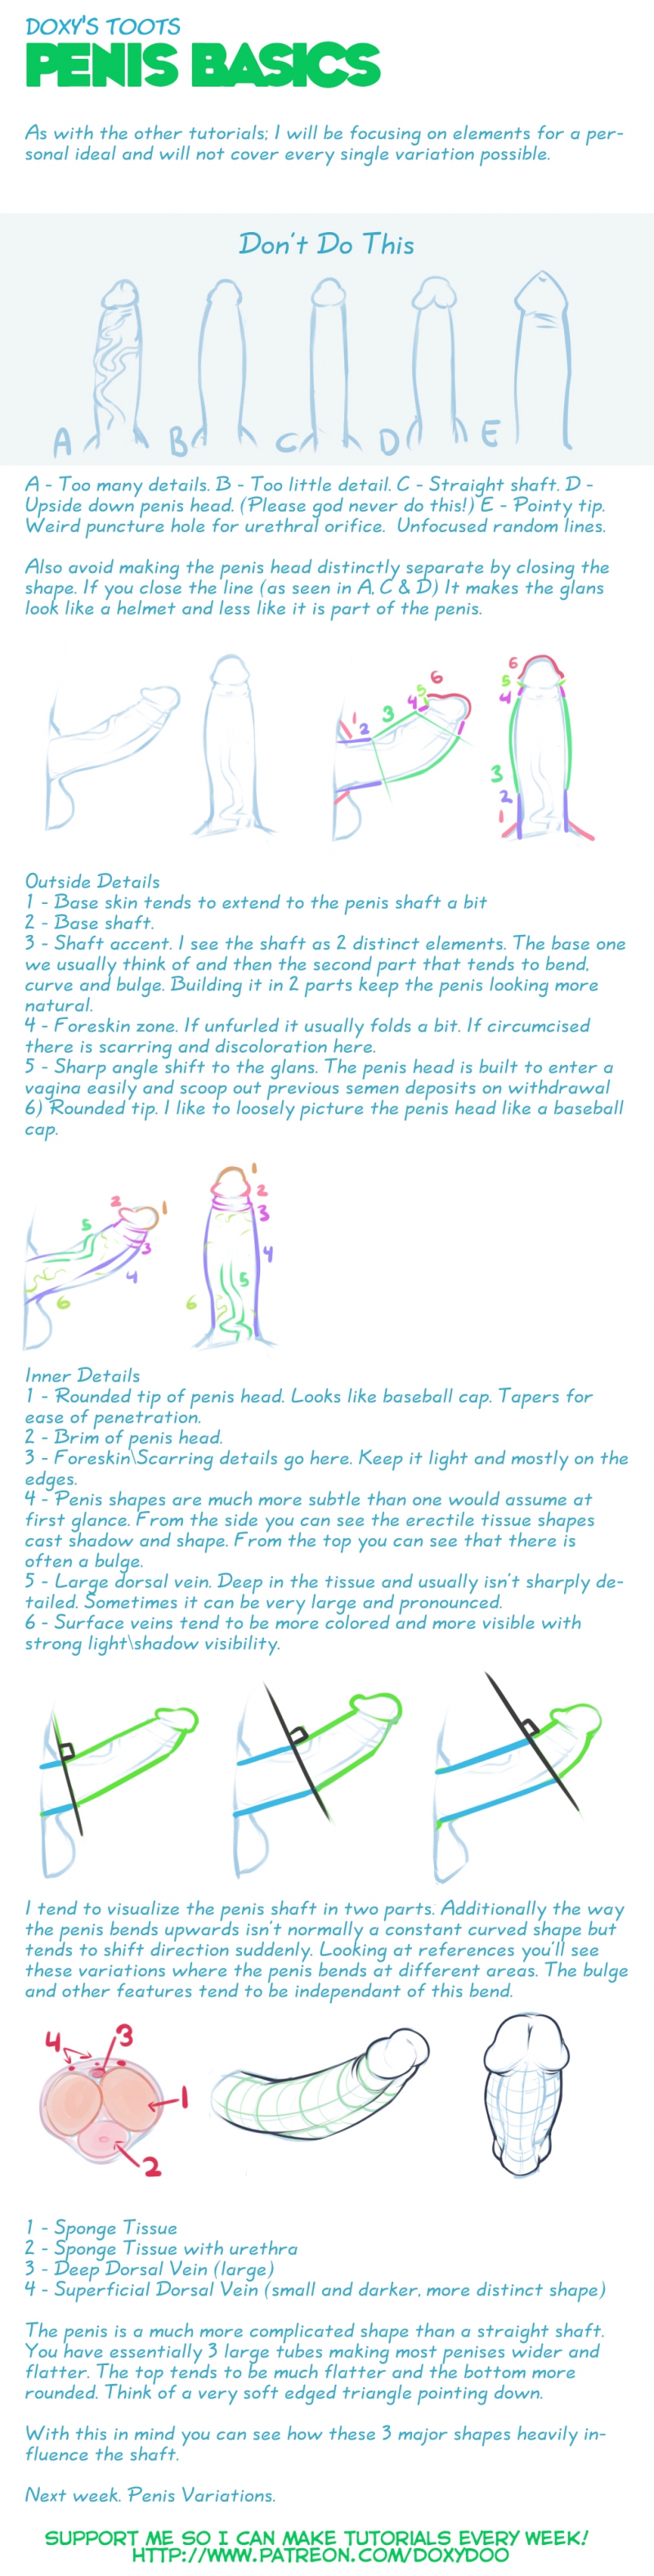 DOXY'S TOOTS
PENIS BASICS
As with the other tutorials; I will be focusing on elements for a per-
sonal ideal and will not cover every single variation possible.
Don't Do This
A B C D E
A - Too many details. B - Too little detail. C - Straight shaft. D -
Upside down penis head. (Please god never do this!) E - Pointy tip.
Weird puncture hole for urethral orifice. Unfocused random lines.
Also avoid making the penis head distinctly separate by closing the
shape. If you close the line (as seen in A, C & D) It makes the glans
look like a helmet and less like it is part of the penis.
1 2 3 4 5 6
6
5
4
3
2
1
Outside Details
1 - Base skin tends to extend to the penis shaft a bit
2 - Base shaft.
3 - Shaft accent. I see the shaft as 2 distinct elements. The base one
we usually think of and then the second part that tends to bend,
curve and bulge. Building it in 2 parts keep the penis looking more
natural.
4 - Foreskin zone. If unfurled it usually folds a bit. If circumcised
there is scarring and discoloration here.
5 - Sharp angle shift to the glans. The penis head is built to enter a
vagina easily and scoop out previous semen deposits on withdrawal
6) Rounded tip. I like to loosely picture the penis head like a baseball
cap.
1 2 3 4 5 6
1
2
3
4
5
6
Inner Details
1 - Rounded tip of penis head. Looks like baseball cap. Tapers for
ease of penetration.
2 - Brim of penis head.
3 - Foreskin\Scarring details go here. Keep it light and mostly on the
edges.
4 - Penis shapes are much more subtle than one would assume at
first glance. From the side you can see the erectile tissue shapes
cast shadow and shape. From the top you can see that there is
often a bulge.
5 - Large dorsal vein. Deep in the tissue and usually isn't sharply de-
tailed. Sometimes it can be very large and pronounced.
6 - Surface veins tend to be more colored and more visible with
strong light\shadow visibility.
I tend to visualize the penis shaft in two parts. Additionally the way
the penis bends upwards isn't normally a constant curved shape but
tends to shift direction suddenly. Looking at references you'll see
these variations where the penis bends at different areas. The bulge
and other features tend to be independant of this bend.
4 3
1
2
1 - Sponge Tissue
2 - Sponge Tissue with urethra
3 - Deep Dorsal Vein (large)
4 - Superficial Dorsal Vein (small and darker, more distinct shape)
The penis is a much more complicated shape than a straight shaft.
You have essentially 3 large tubes making most penises wider and
flatter. The top tends to be much flatter and the bottom more
rounded. Think of a very soft edged triangle pointing down.
With this in mind you can see how these 3 major shapes heavily in-
fluence the shaft.
Next week. Penis Variations.
SUPPORT ME SO I CAN MAKE TUTORIALS EVERY WEEK!
HTTP://WWW.PATREON.COM/DOXYDOO